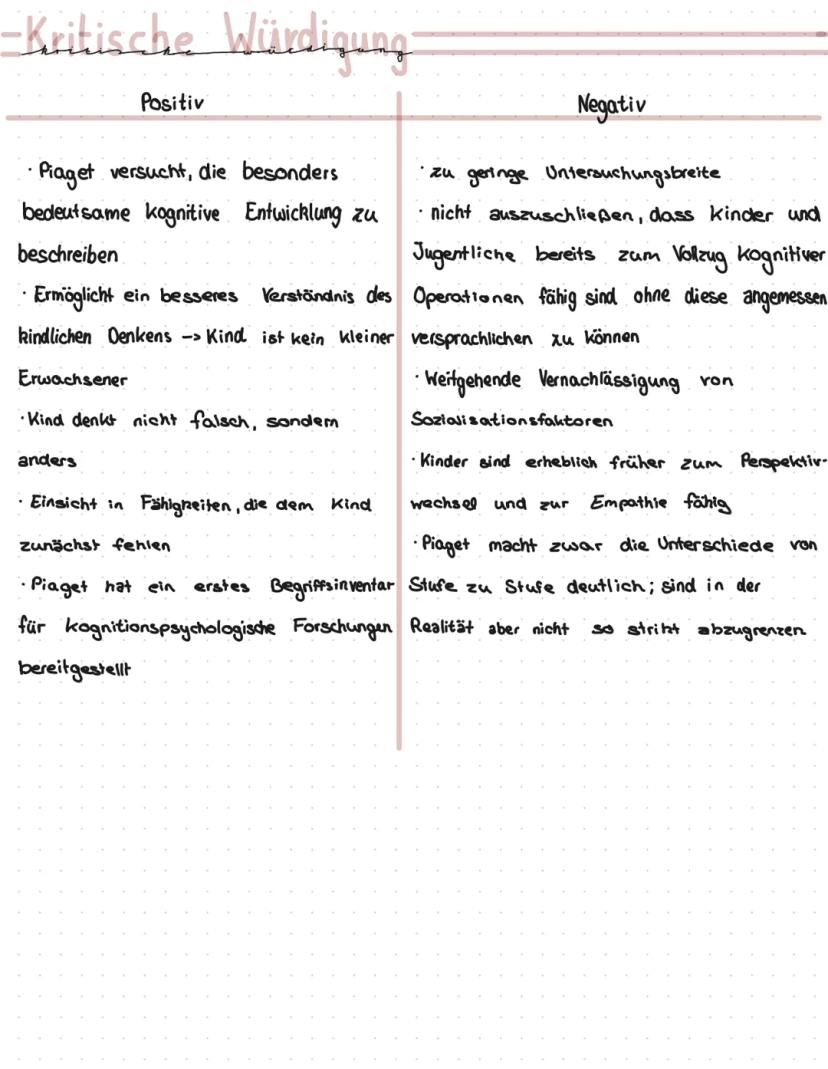 Kritische Würdigung
kritische würdigung
Positiv
Negativ
· Piaget versucht, die besonders
bedeutsame kognitive Entwicklung zu
beschreiben
· Ermöglicht ein besseres Verständnis des
kindlichen Denkens -> Kind ist kein kleiner
Erwachsener
· Kind denkt nicht falsch, sondern
anders
· Einsicht in Fähigkeiten, die dem Kind
zunächst fehlen
· Piaget hat ein erstes Begriffsinventar
für kognitionspsychologische Forschungen
bereitgestellt
· zu geringe Untersuchungsbreite
· nicht auszuschließen, dass Kinder und
Jugentliche bereits zum Vollzug kognitiver
Operationen fähig sind ohne diese angemessen
versprachlichen zu können
· Weitgehende Vernachlässigung von
Sozialisationsfaktoren
· Kinder sind erheblich früher zum Perspektiv-
wechsel und zur Empathie fähig
· Piaget macht zwar die Unterschiede von
Stufe zu Stufe deutlich; sind in der
Realität aber nicht so strikt abzugrenzen